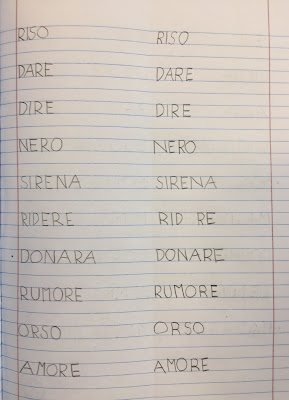 RISO RISO
DARE DARE
DIRE DIRE
NERO NERO
SIRENA SIRENA
RIDERE RID RE
DONARA DONARE
RUMORE RUMORE
ORSO ORSO
AMORE AMORE